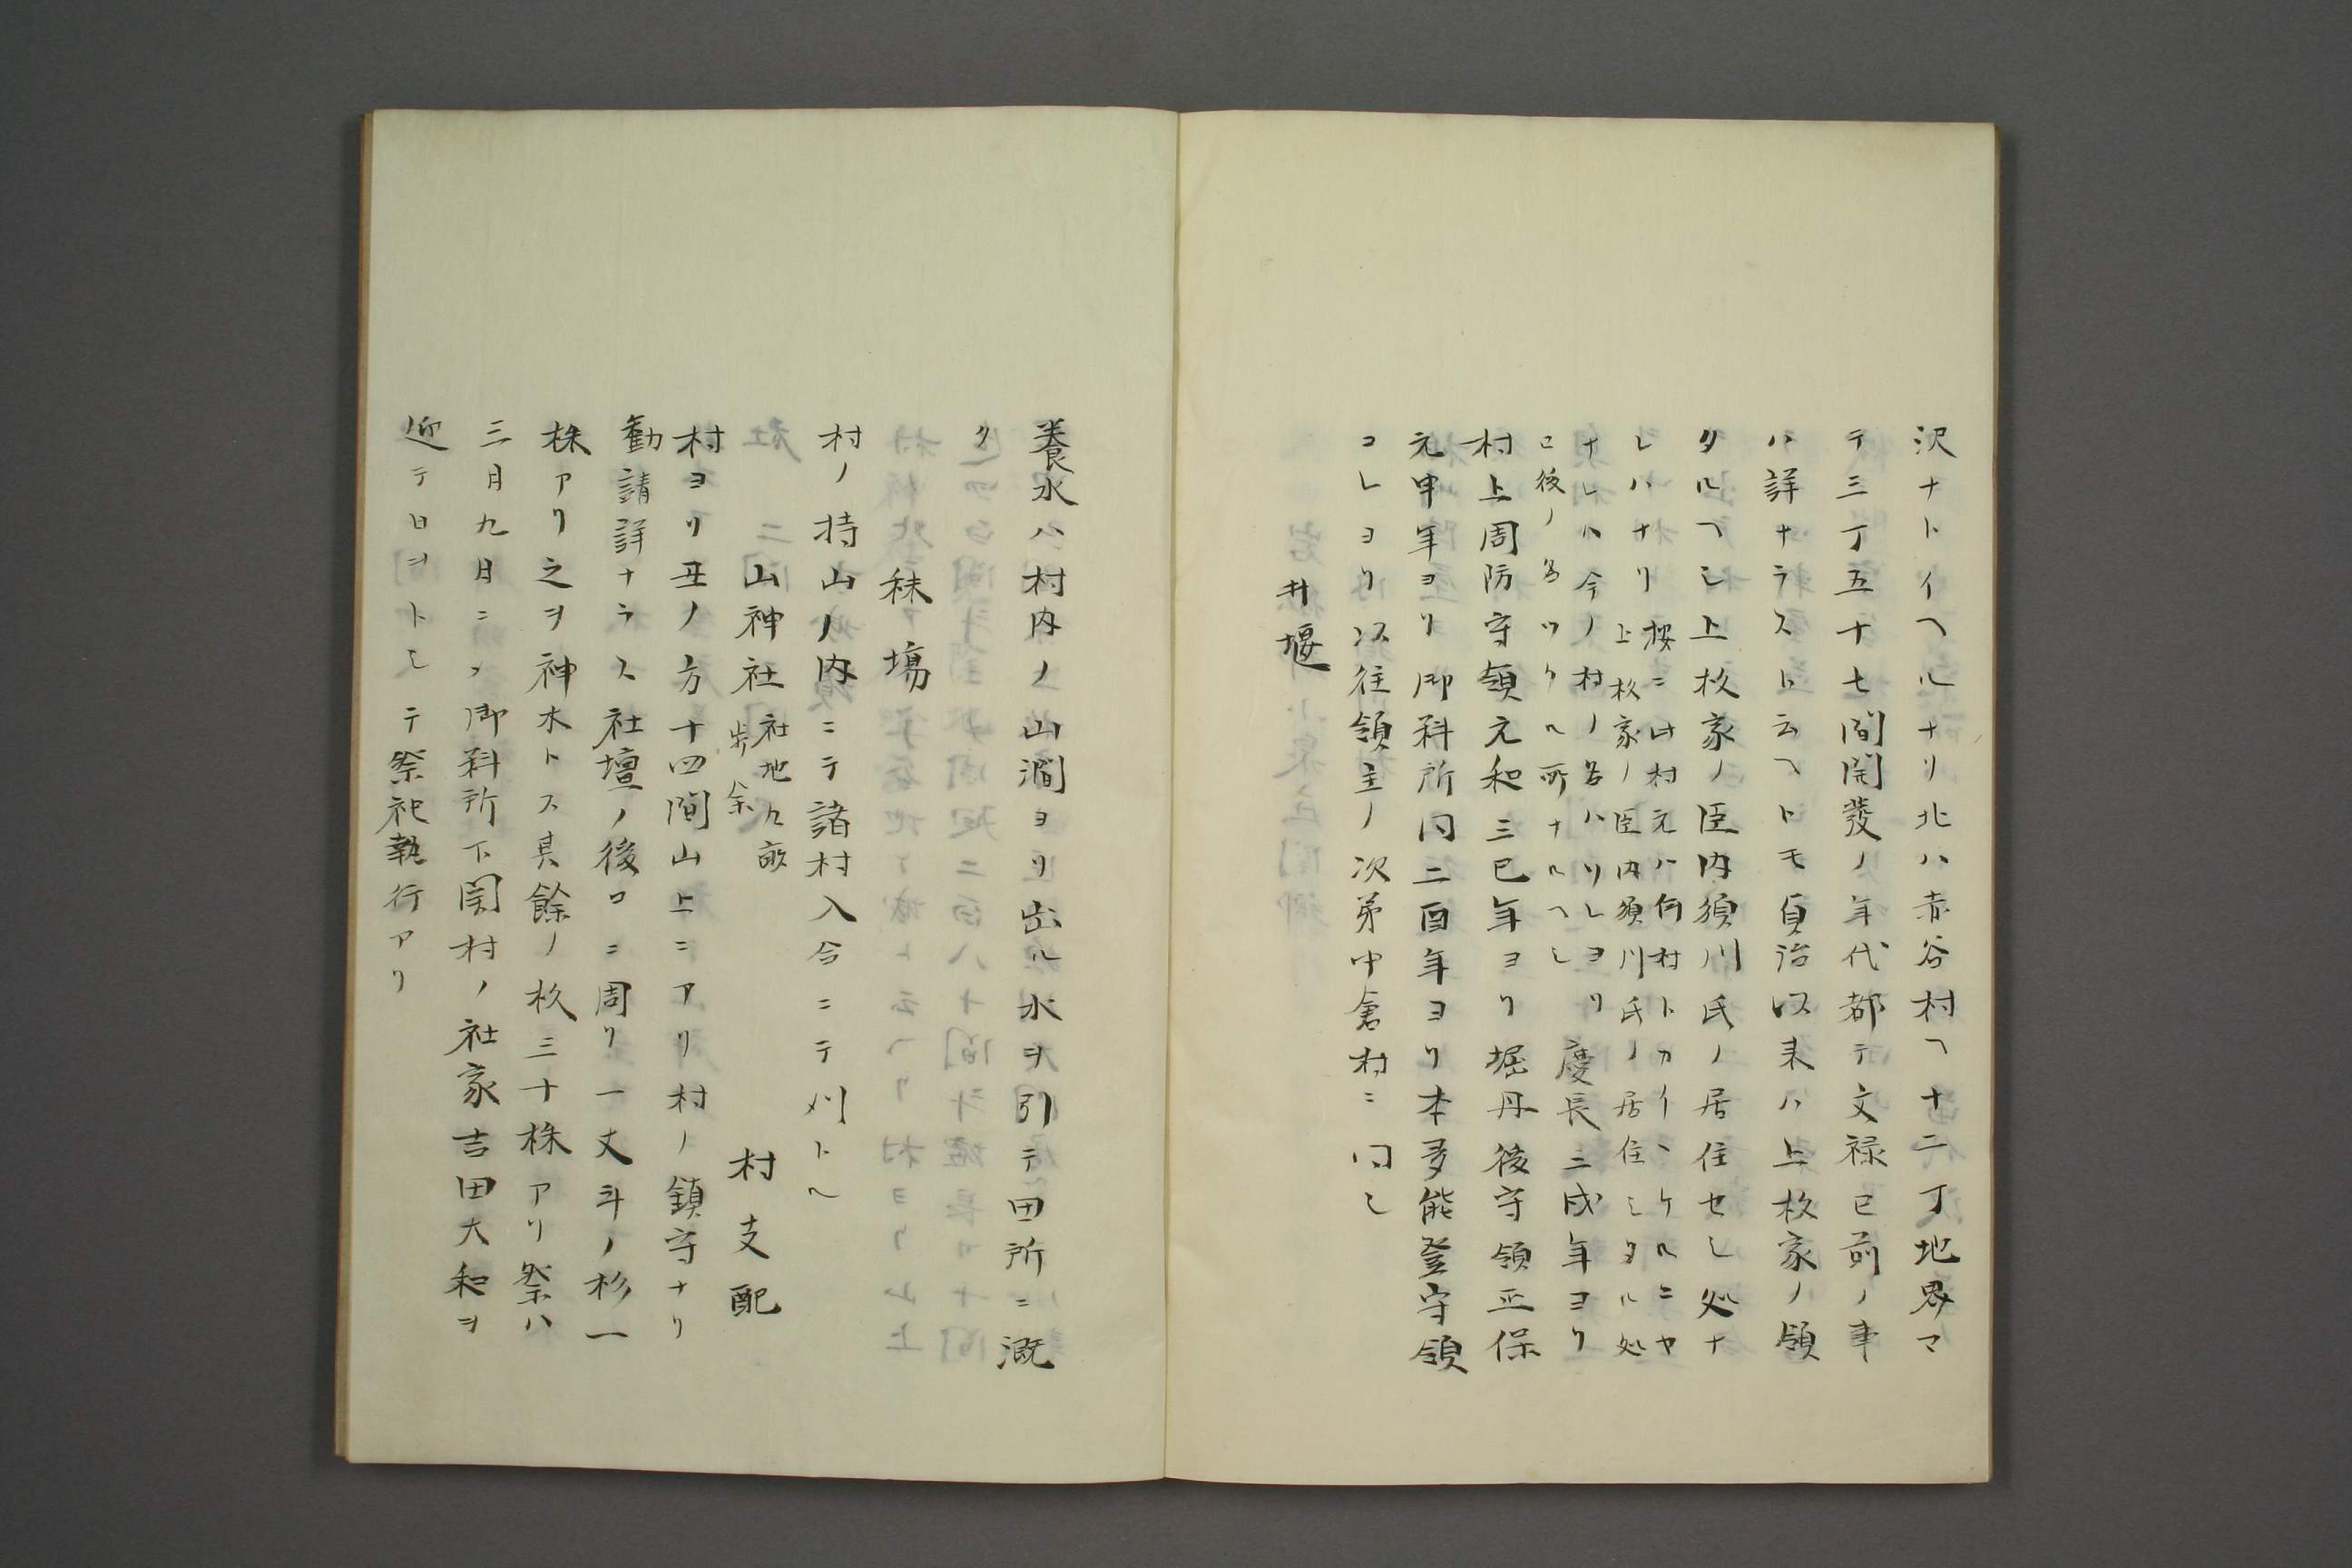 沢ナトイヘルナリ北ハ赤谷村ヘ十二丁地界マ
テ三丁五十七間開發ノ年代都テ文禄已前ノ事
ハ詳ナラスト云ヘトモ貞治以来ハ上杦家ノ領
タルヘシ上杦家ノ臣内須川氏ノ居住セシ処ナ
レハナリ
按ニ此村元ハ何村トカイヽケルニヤ
上杦家ノ臣内須川氏ノ居住シタル処
ナレハ今ノ村ノ名ハリレヨリ
ロ後ノ名ツクル所ナルヘシ
慶長三戌年ヨリ
村上周防守領元和三巳年ヨリ堀丹後守領正保
元申年ヨリ御料所同二酉年ヨリ本多能登守領
コレヨリ以往領主ノ次第中倉村ニ同シ
井堰
養水ハ村内ノ山澗ヨリ出ル水ヲ引テ田所ニ漑
ク
秣場
村ノ持山ノ内ニテ諸村入合ニテ刈トル
山神社
社地九畝
歩余
村支配
村ヨリ丑ノ方十四間山上ニアリ村ノ鎮守ナリ
勸請詳ナラス社壇ノ後ロニ周リ一丈斗ノ杉一
株アリ之ヲ神木トス其餘ノ杦三十株アリ祭ハ
三月九月ニ乄御料所下関村ノ社家吉田大和ヲ
迎テ日ヲトシテ祭祀執行アリ